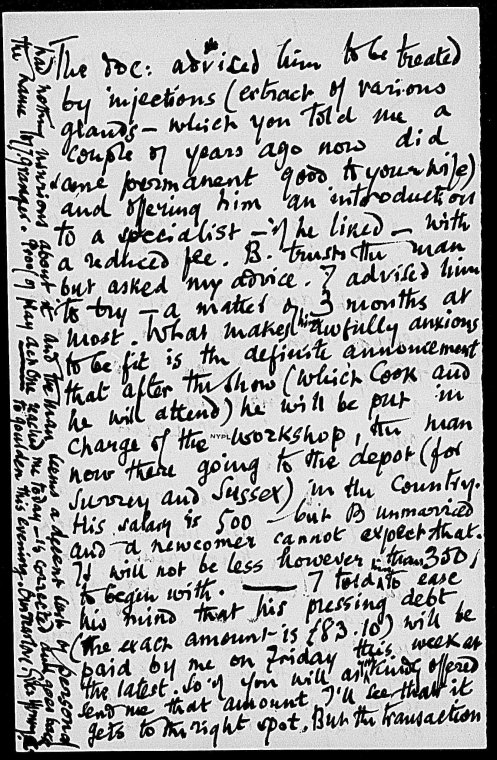 The doc: advised him to be treated
by injections (extract of various
glands – which you told me a
couple of years ago now did
some permanent good to your wife)
and offering him an introduction
to a specialist – if he liked – with
a reduced fee. B. trusts the man
but asked my advice. I advised him
to try – a matter of 3 months at
most. What makes him awfully anxious
to be fit is the definite announcement
that after the show (which Cook and
he will attend) he will be put in
charge of the workshop, the man
now there going to the depot (for
Surrey and Sussex) in the country.
His salary is 500 – but B unmarried
and a newcomer cannot expect that.
It will not be less however than 350
to begin with. — I told to ease
his mind that his pressing debt
(the exact amount is £83.10) will be
paid by me on Friday this week at
the latest. So if you will as kindly offered
send me that amount I'll see that it
gets to the right spot. But the transaction
has nothing usurious about it and the man seems a decent sort of person
the name is Granger. Proof of play act One reached me today – is corrected and goes back
to this evening.
NYPL